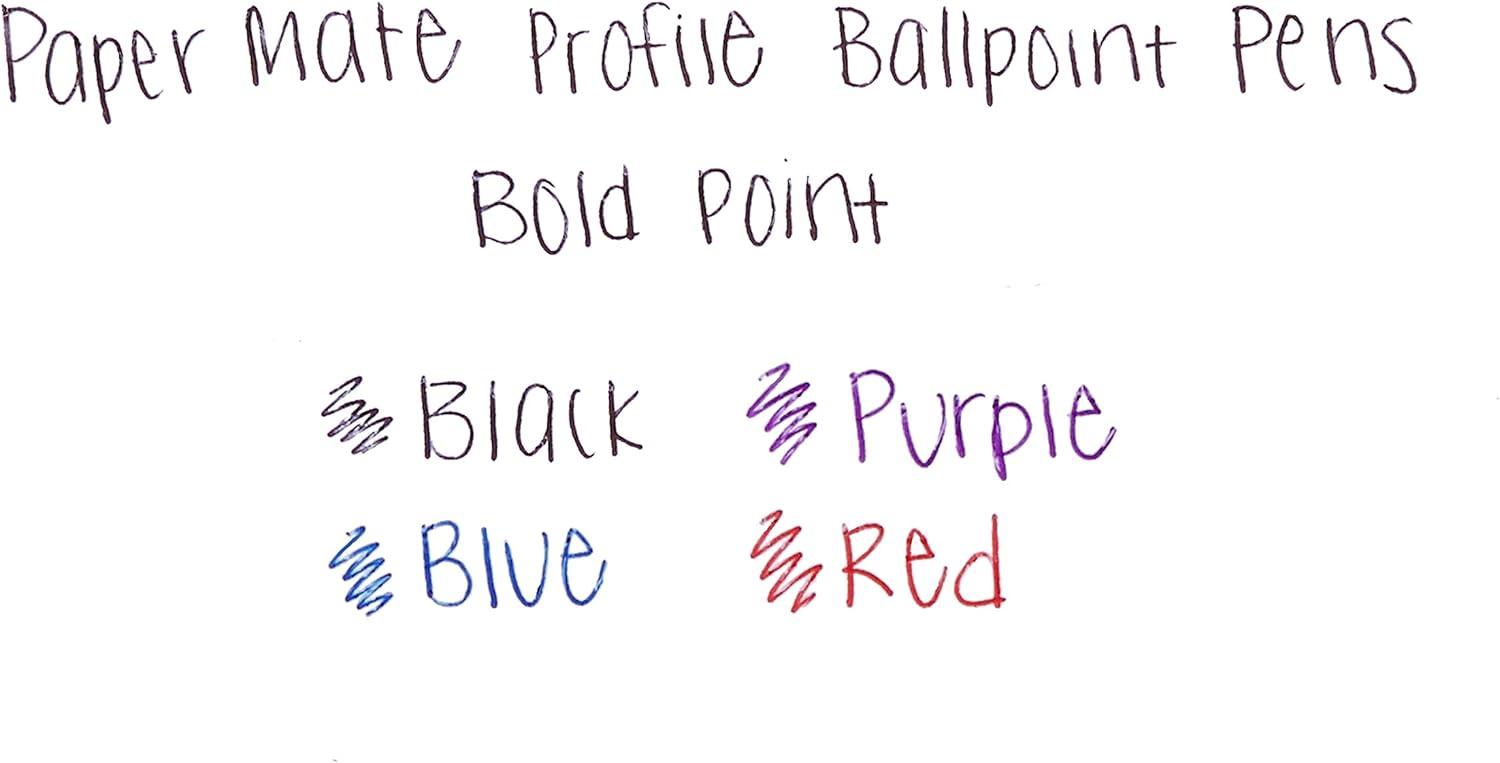 Paper Mate Profile Ballpoint Pens
Bold Point
Black Purple
Blue Red